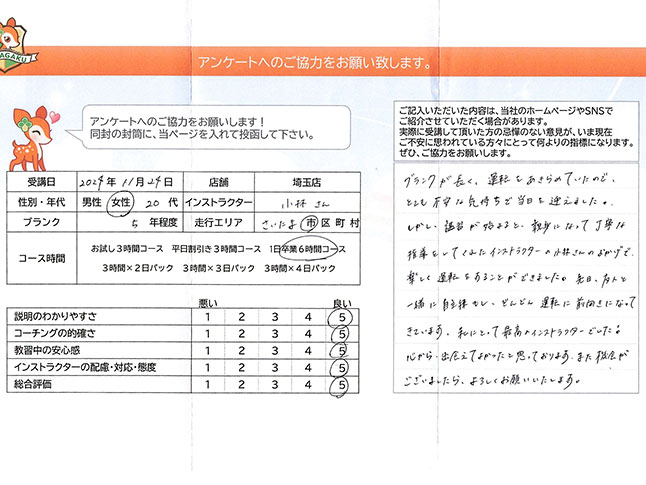 AGAKU
アンケートへのご協力をお願い致します。
アンケートへのご協力をお願いします！
同封の封筒に、当ページを入れて投函して下さい。
ご記入いただいた内容は、当社のホームページやSNSで
ご紹介させていただく場合があります。
実際に受講して頂いた方の忌憚のない意見が、いま現在
ご不安に思われている方々にとって何よりの指標になります。
ぜひ、ご協力をお願いします。
受講日 2024年 11月 24日 店舗 埼玉店
性別・年代 男性 女性 20 代 インストラクター 小林 さん
ブランク 5 年程度 走行エリア さいたま 市 区 町 村
コース時間
お試し3時間コース 平日割引き3時間コース 1日卒業6時間コース
3時間×2日パック 3時間×3日パック 3時間×4日パック
悪い 良い
説明のわかりやすさ 1 2 3 4 5
コーチングの的確さ 1 2 3 4 5
教習中の安心感 1 2 3 4 5
インストラクターの配慮・対応・態度 1 2 3 4 5
総合評価 1 2 3 4 5
ブランクが長く、運転をあきらめていたので、
とても不安な気持ちで当日を迎えました。
しかし、講習が始まると、親身になって丁寧な
指導をしてくれたインストラクターの小林さんのおかげで、
楽しく運転をすることができました。先日、友人と
一緒に自主練もし、どんどん運転に前向きになって
きています。私にとって最高のインストラクターでした。
心から、出会えてよかったと思っております。また機会が
ございましたら、よろしくお願いいたします。